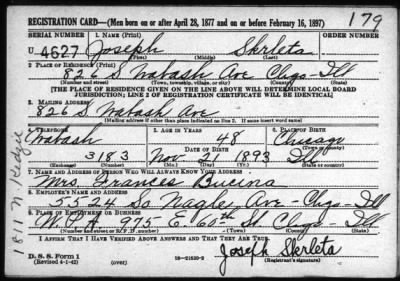 REGISTRATION CARD—(Men born on or after April 28, 1877 and on or before February 16, 1897)
179
SERIAL NUMBER 1. NAME (Print) ORDER NUMBER
U 4627 Joseph Skrleta
(First) (Middle) (Last)
2. PLACE OF RESIDENCE (Print)
826 S Wabash Ave Chgo-Ill
(Number and street) (Town, township, village, or city) (County) (State)
[THE PLACE OF RESIDENCE GIVEN ON THE LINE ABOVE WILL DETERMINE LOCAL BOARD
JURISDICTION; LINE 2 OF REGISTRATION CERTIFICATE WILL BE IDENTICAL]
3. MAILING ADDRESS
826 S Wabash Ave
[Mailing address if other than place indicated on line 2. If same insert word same]
4. TELEPHONE 5. AGE IN YEARS 6. PLACE OF BIRTH
Wabash 48 Chicago
DATE OF BIRTH (Town or county)
3183 Nov 21 1893 Ill
(Exchange) (Number) (Mo.) (Day) (Yr.) (State or country)
7. NAME AND ADDRESS OF PERSON WHO WILL ALWAYS KNOW YOUR ADDRESS
Mrs Frances Bucina
8. EMPLOYER'S NAME AND ADDRESS
5524 So Nagle Ave-Chgo-Ill
9. PLACE OF EMPLOYMENT OR BUSINESS
W.P.A 975 E. 60th St. Chgo-Ill
(Number and street or R. F. D. number) (Town) (County) (State)
I AFFIRM THAT I HAVE VERIFIED ABOVE ANSWERS AND THAT THEY ARE TRUE.
D. S. S. Form 1
(Revised 4-1-42) (over) 16—21630-2
Joseph Skrleta
(Registrant's signature)
1811 N